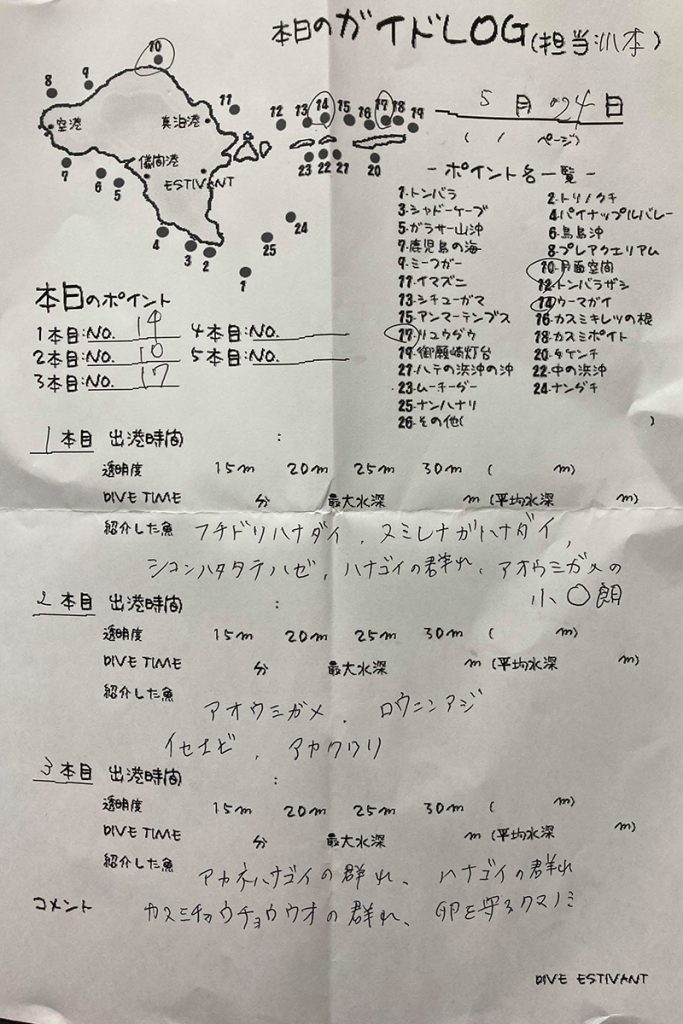 本日のガイドLOG(担当:川本)
5月24日
( / ページ)
10
8
9
空港
真泊港
11
12 13 14 15 16 17 18 19
儀間港
ESTIVANT
23 22 21
20
7
6
5
4
3
2
1
25
24
-ポイント名一覧-
1.トンバラ 2.トリノクチ
3.シャドーケーブ 4.パイナップルバレー
5.ガラサー山沖 6.鳥島沖
7.鹿児島の海 8.プレアクエリアム
9.ミーフガー 10.月面空間
11.イマズニ 12.トンバラザシ
13.シチューガマ 14.ウーマガイ
15.アンマーテンプス 16.カスミキレツの根
17.リュウグウ 18.カスミポイト
19.御願崎灯台 20.タケンチ
21.ハテの浜沖の沖 22.中の浜沖
23.ムーチーダー 24.ナングチ
25.ナンハナリ
26.その他( )
本日のポイント
1本目:NO. 14 4本目:NO.
2本目:NO. 10 5本目:NO.
3本目:NO. 17
1本目 出港時間 :
透明度 15m 20m 25m 30m ( m)
DIVE TIME 分 最大水深 m (平均水深 m)
紹介した魚 フチドリハナダイ、スミレナガハナダイ、
シコンハタタテハゼ、ハナゴイの群れ、アオウミガメの
小〇朗
2本目 出港時間 :
透明度 15m 20m 25m 30m ( m)
DIVE TIME 分 最大水深 m (平均水深 m)
紹介した魚
アオウミガメ、ロウニンアジ
イセエビ、アカククリ
3本目 出港時間 :
透明度 15m 20m 25m 30m ( m)
DIVE TIME 分 最大水深 m (平均水深 m)
紹介した魚 アカネハナゴイの群れ、ハナゴイの群れ
コメント カスミチョウチョウウオの群れ、卵を守るクマノミ
DIVE ESTIVANT